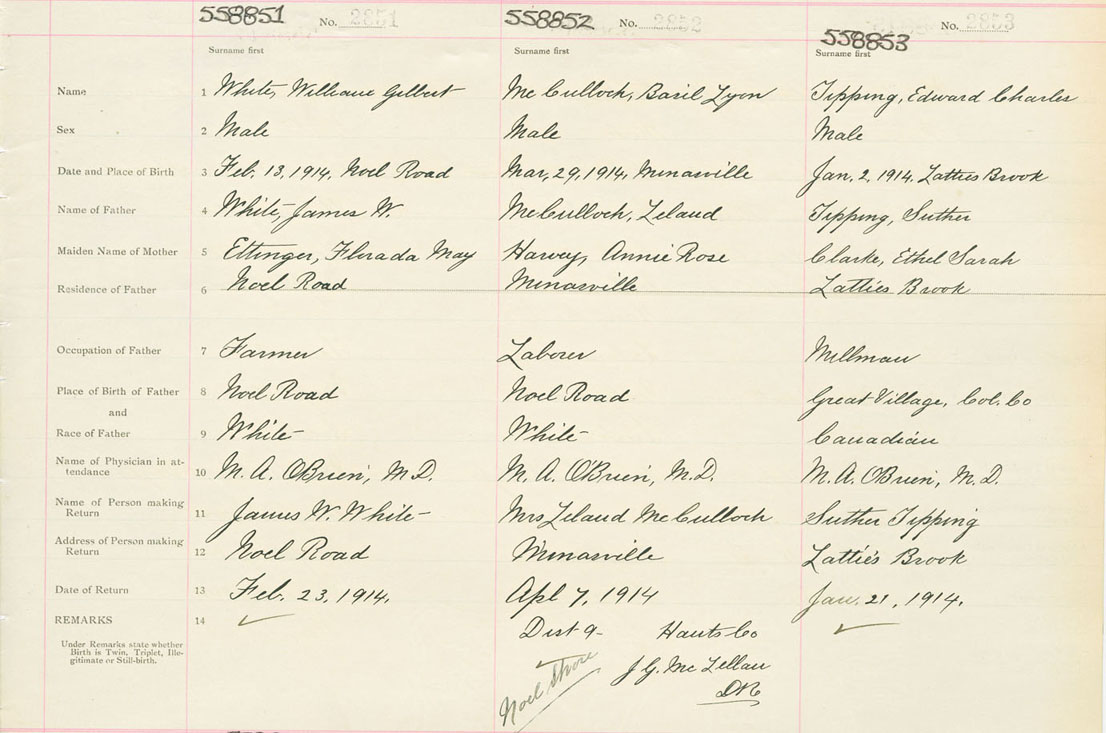 558851 No. 2851 558852 No. 2852 558853 No. 2853
Surname first Surname first Surname first
Name 1 White, William Gilbert McCulloch, Basil Lyon Tipping, Edward Charles
Sex 2 Male Male Male
Date and Place of Birth 3 Feb. 13, 1914, Noel Road Mar, 29, 1914, Minasville Jan. 2, 1914, Latties Brook
Name of Father 4 White, James W. McCulloch, Leland Tipping, Suther
Maiden Name of Mother 5 Ettinger, Florada May Harvey, Annie Rose Clarke, Ethel Sarah
Residence of Father 6 Noel Road Minasville Latties Brook
Occupation of Father 7 Farmer Laborer Millman
Place of Birth of Father 8 Noel Road Noel Road Great Village, Col. Co
and
Race of Father 9 White White Canadian
Name of Physician in at-
tendance 10 M. A. O'Brien, M.D. M. A. O'Brien, M.D. M. A. O'Brien, M.D.
Name of Person making
Return 11 James W. White Mrs Leland McCulloch Suther Tipping
Address of Person making
Return 12 Noel Road Minasville Lattie's Brook
Date of Return 13 Feb. 23, 1914. Apl 7, 1914 Jan. 21, 1914.
REMARKS 14 Dist 9- Hants Co
Under Remarks state whether
Birth is Twin, Triplet, Ille-
gitimate or Still-birth.
Noel Shore J G. McLellan
DR